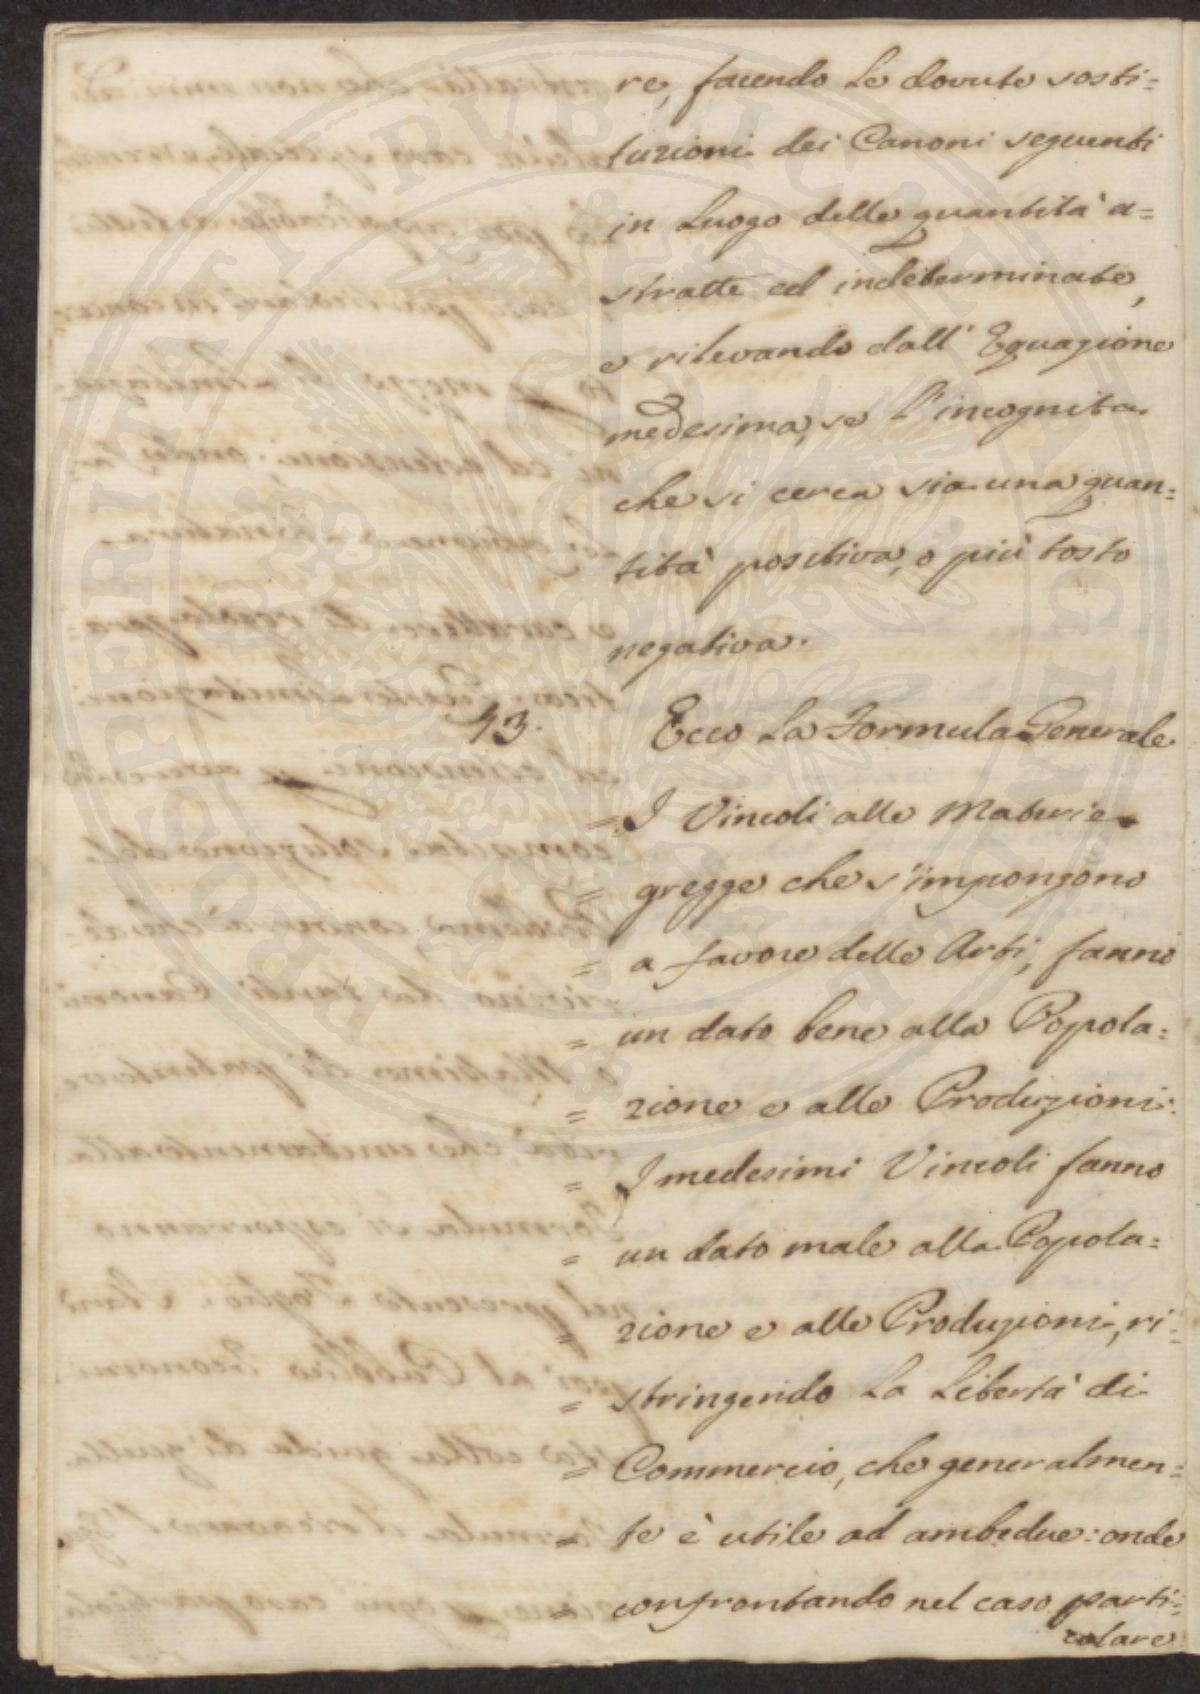 re, facendo le dovute sosti=
tuzioni dei Canoni seguenti
in luogo delle quantità a=
stratte ed indeterminate,
e rilevando dall' Equazione
medesima, se l'incognita
che si cerca sia una quan=
tità positiva, o più tosto
negativa.
43. Ecco la Formula Generale
= I Vincoli alle Materie
= gregge che s'impongono
= a favore delle Arti, fanno
= un dato bene alla Popola=
= zione e alle Produzioni:
= I medesimi Vincoli fanno
= un dato male alla Popola=
= zione e alle Produzioni, ri=
= stringendo la Libertà di
= Commercio, che generalmen=
= te è utile ad ambedue: onde
= confrontando nel caso parti=
colare
PROSPERITATI PUBLICAE AUGENDAE